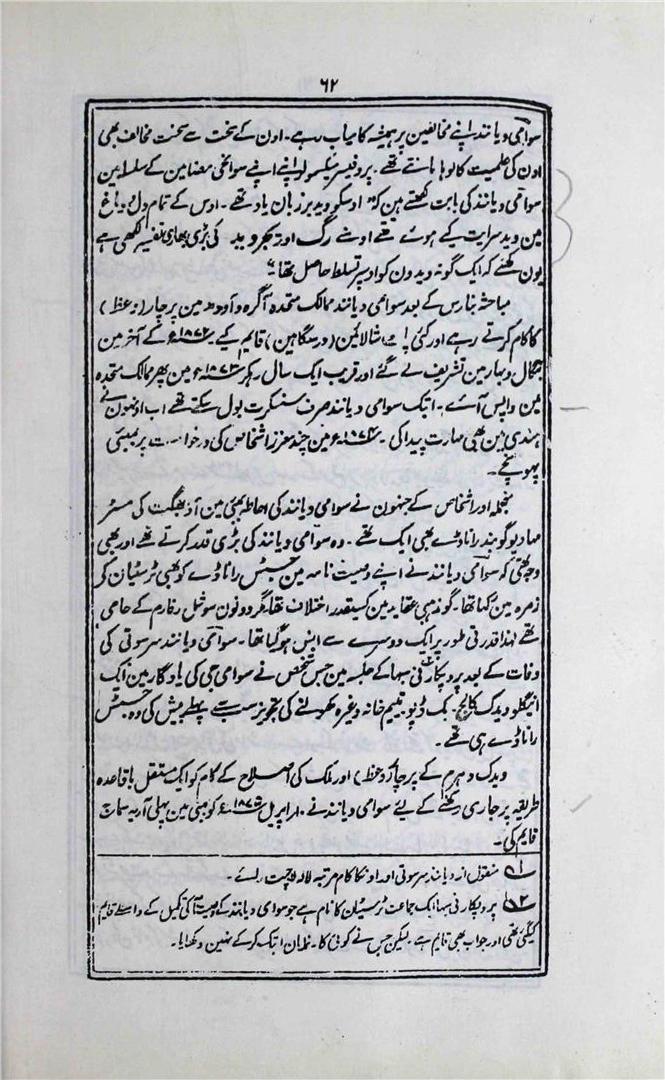 ۶۲
سوامی دیانند اپنے مخالفین پر ہمیشہ کامیاب رہے۔ اون کے سخت سے سخت مخالف بھی
اون کی علمیت کا لوہا مانتے تھے۔ پروفیسر میکسمولر اپنے اپنے سوانحی مضامین کے سلسلہ مین
سوامی دیانند کی بابت لکھتے ہین کہ "اوسکو وید برزبان یاد تھے۔ اوس کے تمام دل و دماغ
مین وید سرایت کیے ہوئے تھے اوسنے رگ اور یجروید کی بڑی بھاری تفسیر لکھی ہے
یون کہئے کہ ایک گونہ ویدون کو اوسپر تسلط حاصل تھا"
مباحثہ بنارس کے بعد سوامی دیانند ممالک متحدہ آگرہ و اودھ مین پرچار (وعظ)
کا کام کرتے رہے اور کئی پاٹ شالائین (درسگاہین) قایم کیے ۱۸۷۲ء کے آخر مین
بنگال و بہار مین تشریف لے گئے اور قریب ایک سال رہکر ۱۸۷۳ء مین پھر ممالک متحدہ
مین واپس آے۔ ابتک سوامی دیانند صرف سنسکرت بول سکتے تھے اب اونہون نے
ہندی مین بھی مہارت پیدا کی۔ ۱۸۷۴ء مین چند معزز اشخاص کی درخواست پر بمبئی
پہونچے۔
منجملہ اور اشخاص کے جنہون نے سوامی دیانند کی احاطہ بمبئی مین آؤبھگت کی مسٹر
مہادیو گوبند راناڈے بھی ایک تھے۔ وہ سوامی دیانند کی بڑی قدر کرتے تھے اور یہی
وجہ تھی کہ سوامی دیانند نے اپنے وصیت نامہ مین جسٹس راناڈے کو بھی ٹرسٹیان کے
زمرہ مین رکھا تھا۔ گو مذہبی عقاید مین کسیقدر اختلاف تھا مگر دونون سوشل رفارم کے حامی
تھے لہذا قدرتی طور پر ایک دوسرے سے انس ہوگیا تھا۔ سوامی دیانند سرسوتی کی
وفات کے بعد پروپکارنی سبھا کے جلسہ مین جس شخص نے سوامی جی کی یادگار مین ایک
اینگلو ویدک کالج۔ بک ڈپو۔ یتیم خانہ وغیرہ کھولنے کی تجویز سب سے پہلے پیش کی وہ جسٹس
راناڈے ہی تھے۔
ویدک دھرم کے پرچار (وعظ) اور ملک کی اصلاح کے کام کو ایک مستقل باقاعدہ
طریقہ پر جاری رکھنے کے لیئے سوامی دیانند نے ۱۰ اپریل ۱۸۷۵ء کو بمبئی مین پہلی آریہ سماج
قایم کی۔
۱ منقول از دیانند سرسوتی اور اونکا کام مرتبہ لالہ لاجپت رائے۔
۲ پروپکارنی سبھا ایک جماعت ٹرسٹیان کا نام ہے جو سوامی دیانند کے وصیتنامہ کی تکمیل کے واسطے قایم
کیگئی تھی اور جو اب بھی قایم ہے۔ لیکن جس نے کوئی کار نمایان ابتک کرکے نہین دکھایا۔